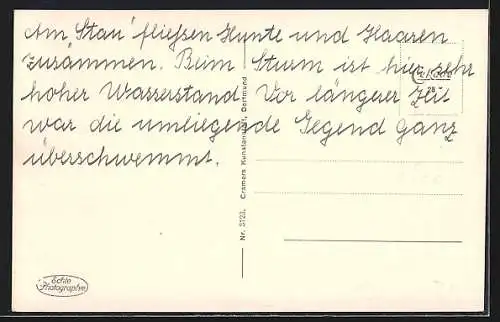 Am Stau fließen Hunte und Haaren
zusammen. Beim Sturm ist hier sehr
hoher Wasserstand. Vor längerer Zeit
war die umliegende Gegend ganz
überschwemmt.
Nr. 5123, Cramers Kunstanstalt, Dortmund
Echte
Photographie